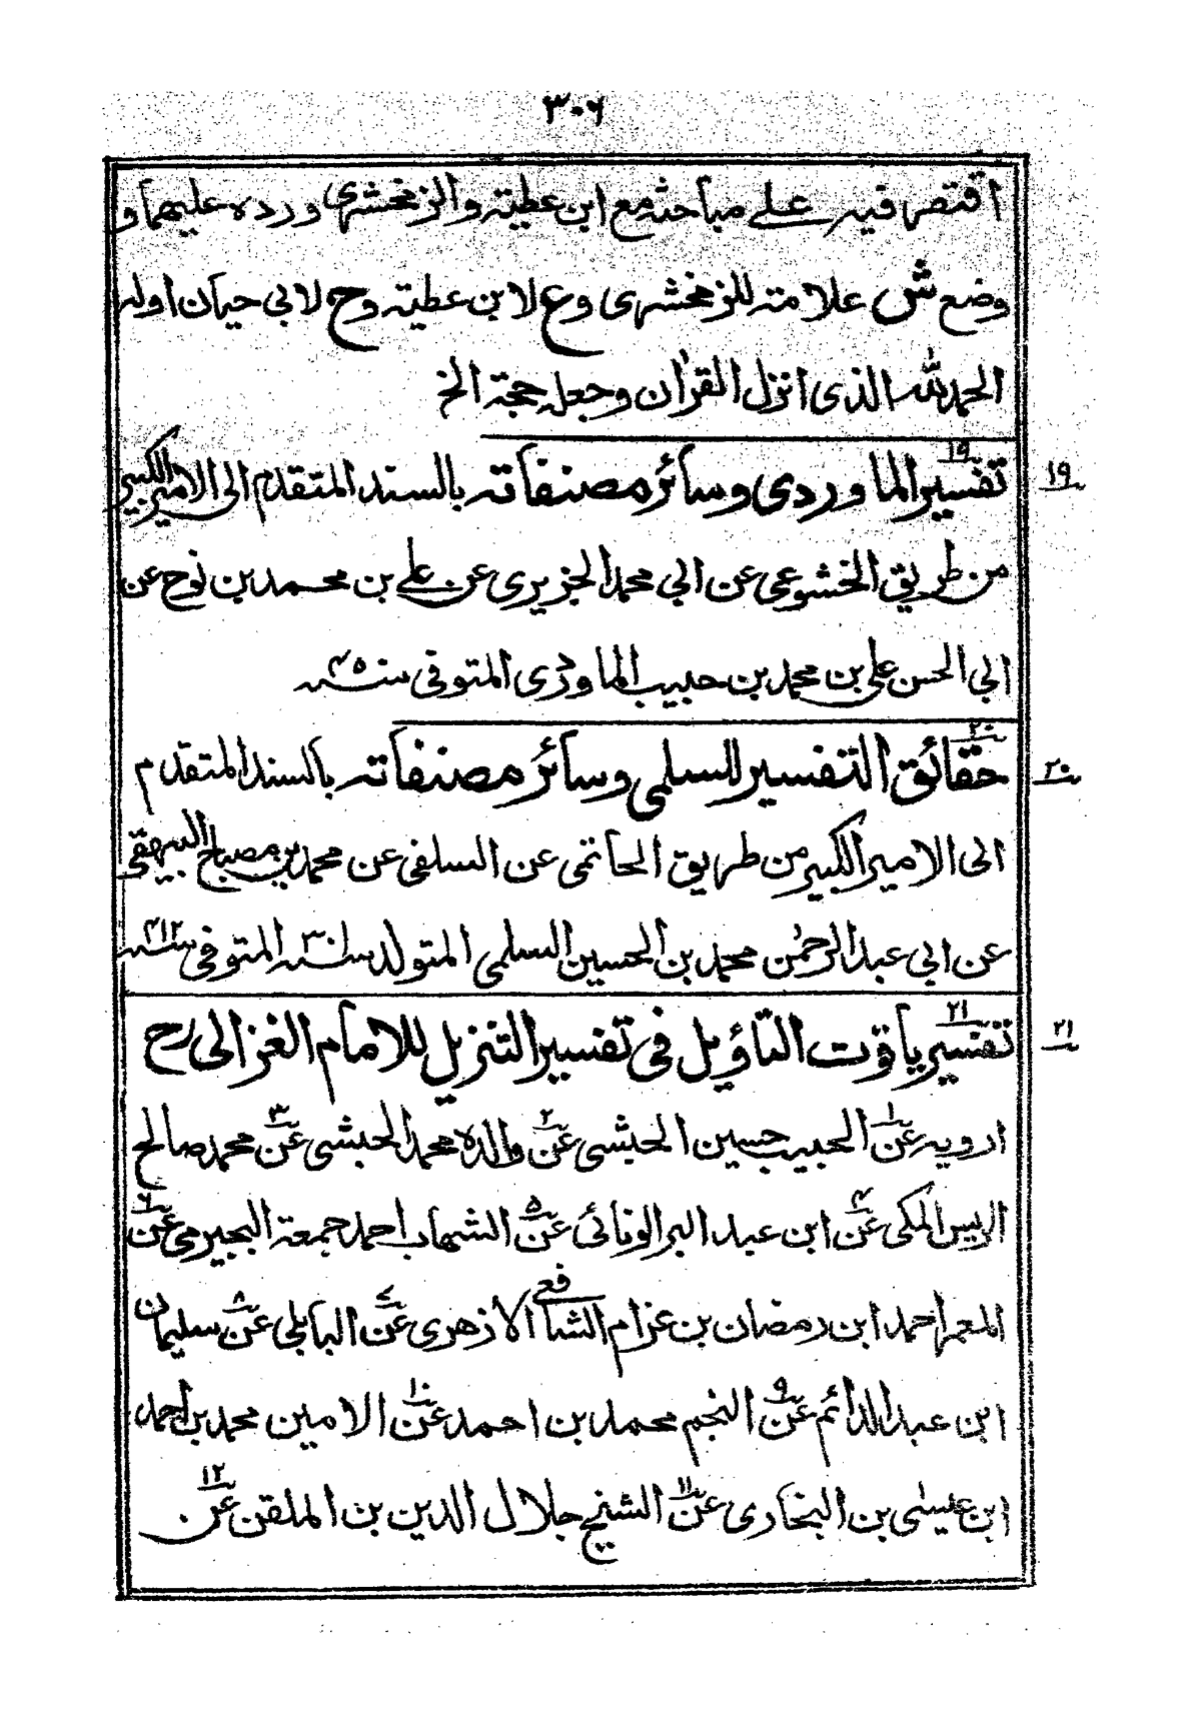 ٣٠٦
اقتصر فيہ علے مباحثہ مع ابن عطيتہ والزمخشري ورده عليهما و
وضع ش علامتہ للزمخشرى و ع لابن عطيتہ و ح لابي حيان اولہ
الحمد لله الذى انزل القرآن وجعلہ حجتہ الخ
١٩ تفسير الماوردى وسائر مصنفاتہ بالسند المتقدم الى الامير الكبير ١٩
من طريق الخشوعى عن ابي محمد الجزيرى عن علے بن محمد بن نوح عن
ابي الحسن على بن محمد بن حبيب الماوردى المتوفى سنہ ٤٥٠
٢٠ حقائق التفسير للسلمى وسائر مصنفاتہ بالسند المتقدم ٢٠
الى الامير الكبير من طريق الحاتمى عن السلفى عن محمد بن مصباح البيهقى
عن ابي عبد الرحمٰن محمد بن الحسين السلمى المتولد سنہ المتوفى سنہ ٤١٢
٢١ تفسير ياقوت التاؤيل فى تفسير التنزيل للامام الغزالى رح ٢١
ارويہ عن١ الحبيب حسين الحبشى عن٢ والده محمد الحبشى عن٣ محمد صالح
الريس المكى عن٤ ابن عبد البر الونائى عن٥ الشهاب احمد جمعة البجيرمى عن٦
المعمر احمد ابن رمضان بن عزام الشافعى الازهرى عن٧ البابلى عن٨ سليمان
ابن عبد الدائم عن٩ النجم محمد بن احمد عن١٠ الامين محمد بن احمد
ابن عيسىٰ بن البخارى عن١١ الشيخ جلال الدين بن الملقن عن١٢